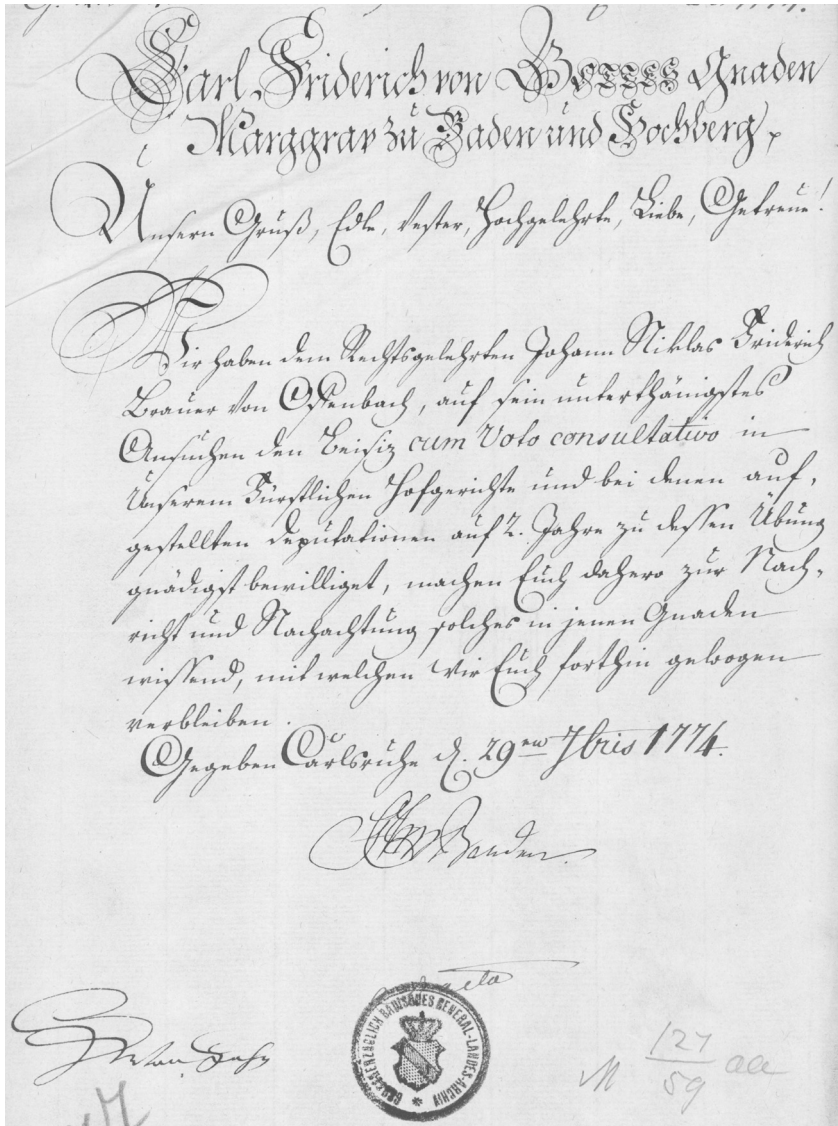 Carl Friderich von GOTTES Gnaden
Marggrav zu Baden und Hochberg,
Unsern Gruß, Edle, Vester, Hochgelehrte, Liebe, Getreue!
Wir haben dem Rechtsgelehrten Johann Niklas Friderich
Brauer von Offenbach, auf sein unterthänigstes
Ansuchen den Beisiz cum Voto consultativo in
Unserem Fürstlichen Hofgerichte und bei denen auf,
gestellten Deputationen auf 2. Jahre zu dessen Übung
gnädigst bewilliget, machen Euch dahero zur Nach-
richt und Nachachtung solches in jenen Gnaden
wissend, mit welchen Wir Euch forthin gewogen
verbleiben.
Gegeben Carlsruhe d. 29ten 7bris 1774.
GROSSHERZOGLICH BADISCHES GENERAL-LANDES-ARCHIV
M 127
59